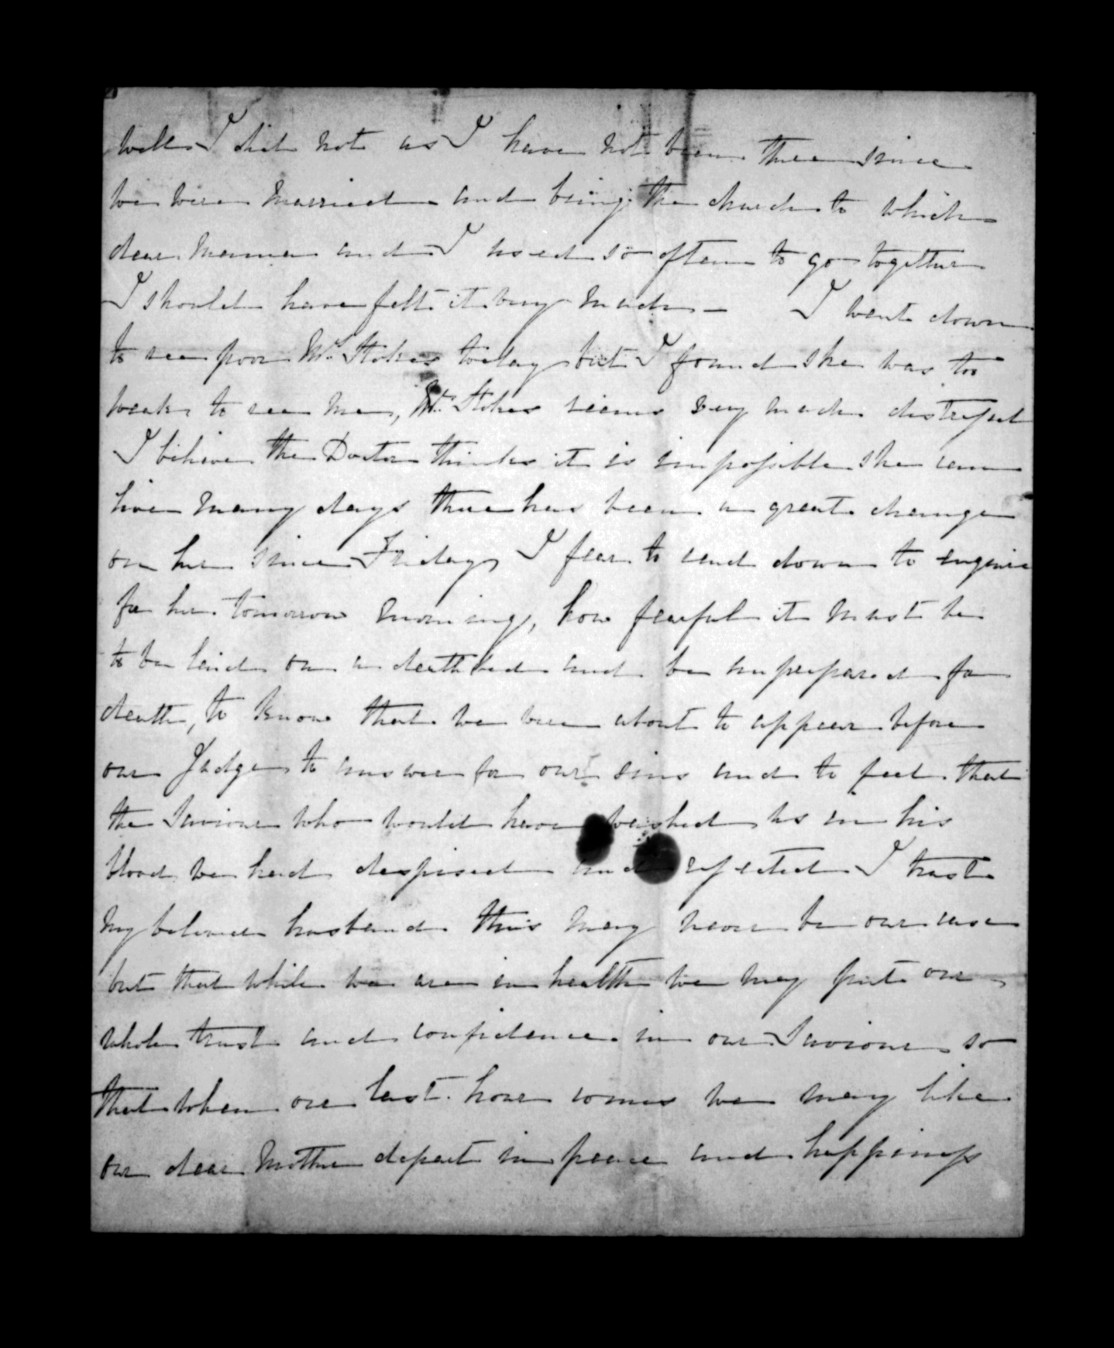 well I did not as I have not been there since
we were married and being the church to which
dear Mama and I used so often to go together
I should have felt it very much — I went down
to see poor Mrs Stokes today but I found she was too
weak to see me, Mr Stokes seems very much distressed
I believe the Doctor thinks it is impossible she can
live many days there has been a great change
on her since Friday, I fear to send down to enquire
for her tomorrow morning, how fearful it must be
to be laid on a deathbed and be unprepared for
death, to know that we were about to appear before
our Judge to answer for our sins and to feel that
the Saviour who would have washed us in his
blood we had despised and rejected I trust
my beloved husband this may never be our case
but that while we are in health we may put our
whole trust and confidence in our Saviour so
that when our last hour comes we may like
our dear Mother depart in peace and happiness